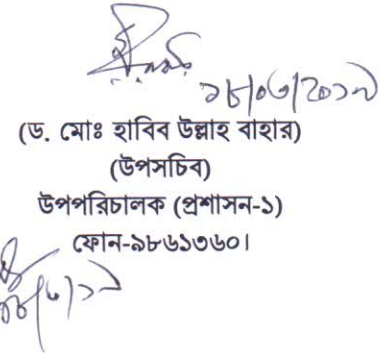 ১৮/০৩/২০১৯
(ড. মোঃ হাবিব উল্লাহ বাহার)
(উপসচিব)
উপপরিচালক (প্রশাসন-১)
ফোন-৯৮৬১৩৬০।